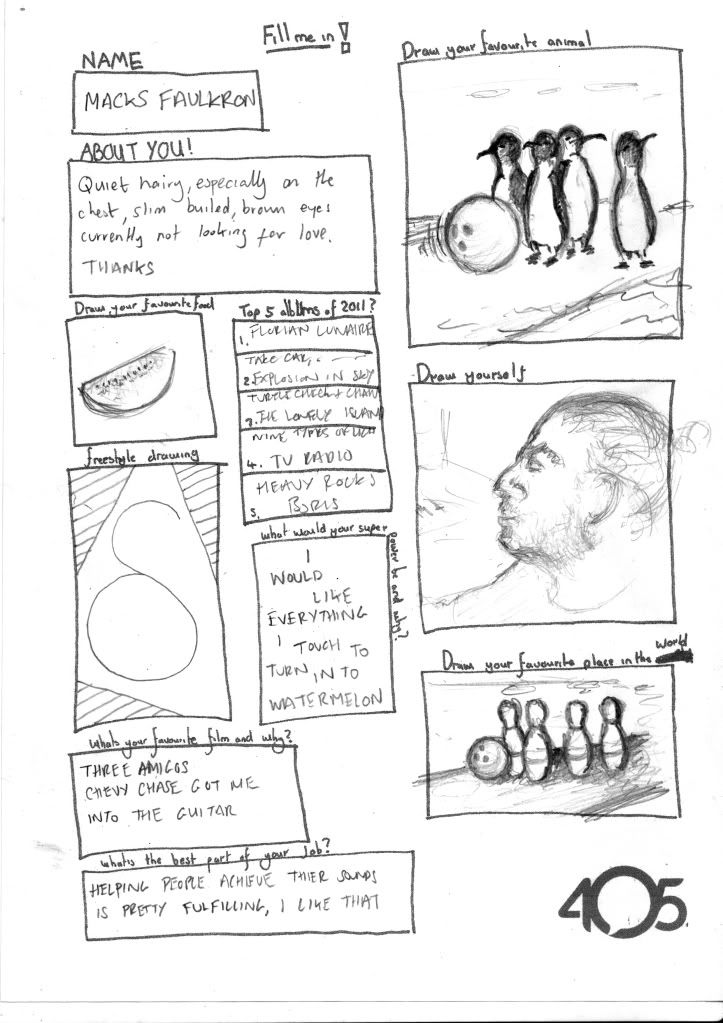 Fill me in!
NAME
MACKS FAULKRON
ABOUT YOU!
Quiet hairy, especially on the
chest, slim builed, brown eyes
currently not looking for love.
THANKS
Draw your favourite food
Top 5 albums of 2011?
1. FLORIAN LUNAIRE
TAKE CARE,
2. EXPLOSION IN SKY
TURTLE
3. THE LONELY ISLAND
NINE TYPES OF LIGH
4. TV RADIO
HEAVY ROCKS
5. BORIS
freestyle drawing
what would your super
power be and why?
I
WOULD
LIKE
EVERYTHING
I TOUCH TO
TURN IN TO
WATERMELON
whats your favourite film and why?
THREE AMIGOS
CHEVY CHASE GOT ME
INTO THE GUITAR
whats the best part of your job?
HELPING PEOPLE ACHIEVE THIER SOUNDS
IS PRETTY FULFILLING, I LIKE THAT
Draw your favourite animal
Draw yourself
Draw your favourite place in the world
405